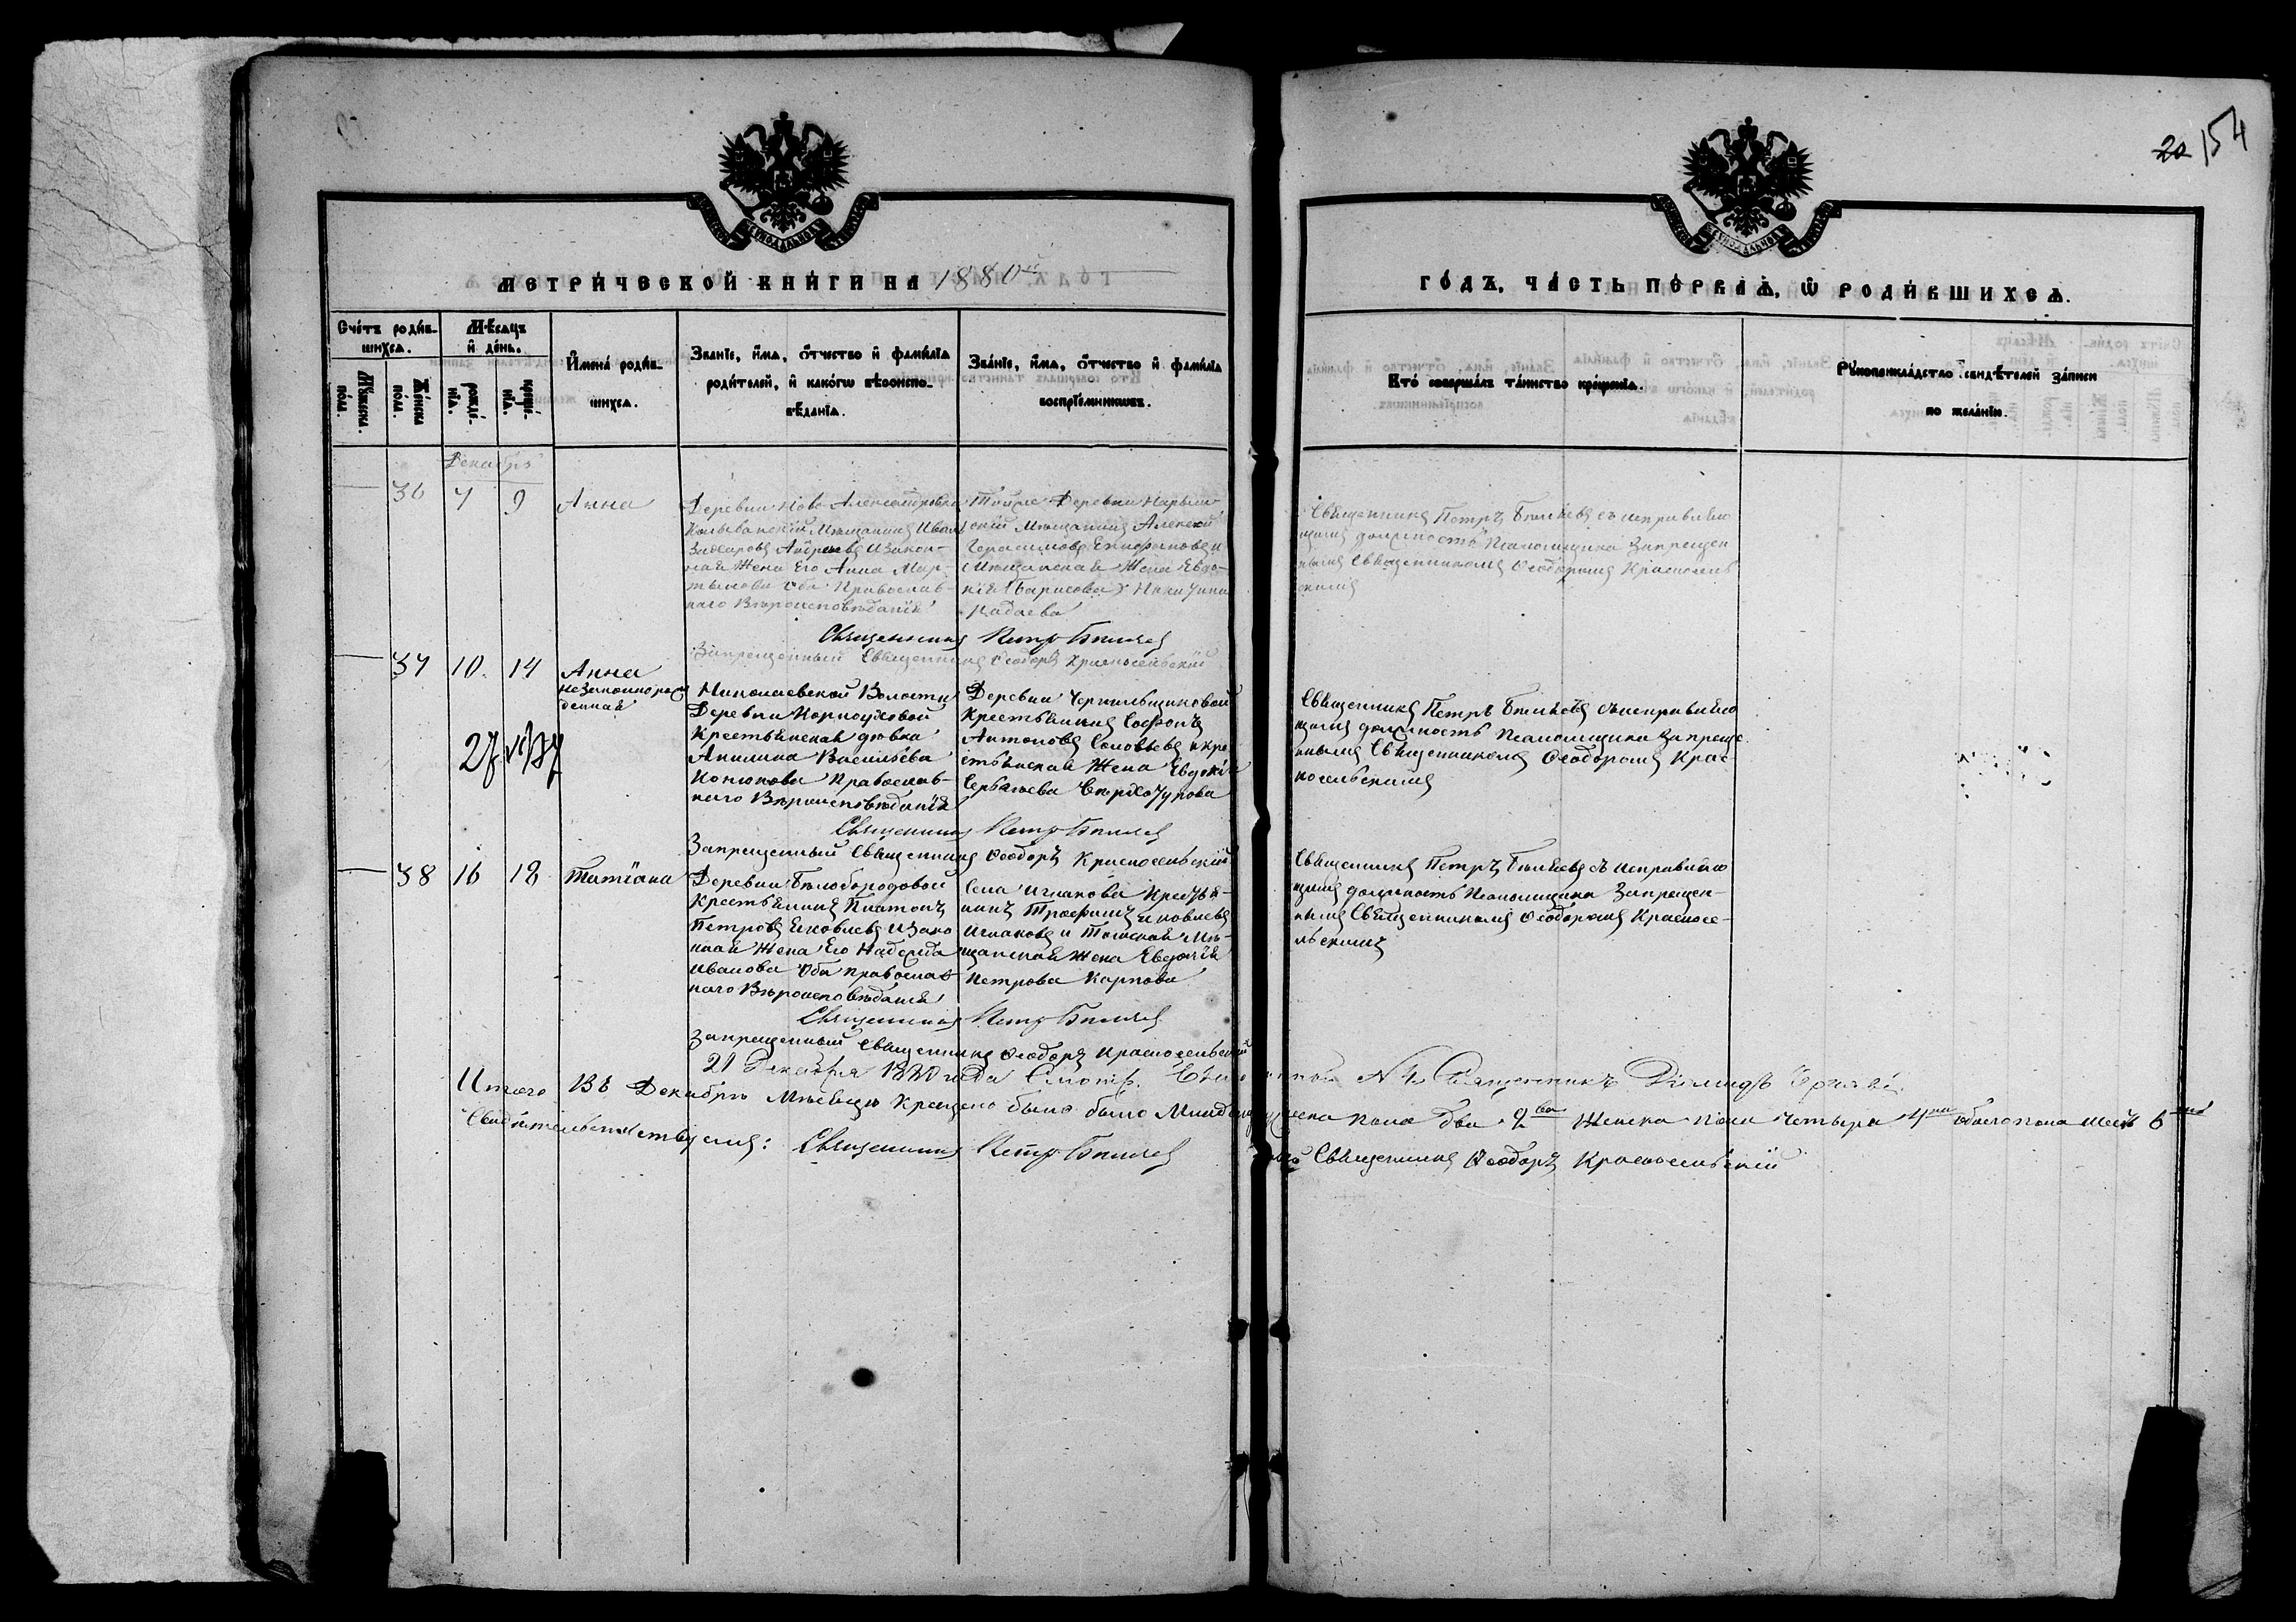 20 154
МЕТРИЧЕСКОЙ КНИГИ НА 1880й
ГОДЪ, ЧАСТЬ ПЕРВАЯ, Ѡ РОДИВШИХСЯ.
Счетъ родив-
шихся.
Мужеска пола.
Женска пола.
Мѣсяцъ
и день.
рожденія.
крещенія.
Имена родив-
шихся.
Званіе, имя, отчество и фамилія
родителей, и какогѡ вѣроиспо-
вѣданія.
Званіе, имя, отчество и фамилія
воспріемниковъ.
Кто совершалъ таинство крещенія.
Рукоприкладство свидѣтелей записи
по желанію.
Декабрь
36 7 9 Анна
Деревни Ново Александровки
Колыванскій Мѣщанинъ Иванъ
Захаровъ Андреевъ и закон-
ная Жена Его Анна Мар-
тынова оба Православ-
наго Вѣроисповѣданія
Тойже Деревни Нарым-
скій Мѣщанинъ Алексѣй
Герасимовъ Епифановъ и
Мѣщанская Жена Евдо-
кія Борисова
Священникъ Петръ Бѣляевъ съ исправляю
щимъ должность Псаломщика Запрещен
нымъ Священникомъ Ѳеодоромъ Красносель
скимъ
Священникъ Петръ Бѣляевъ
Запрещенный Священникъ Ѳеодоръ Красносельскій
37 10 14 Анна
незаконнорож
денная
Николаевской Волости
Деревни Корноуховой
Крестьянская дѣвка
Акилина Васильева
Православ-
наго Вѣроисповѣданія
Деревни Чернильщиковой
Крестьянинъ Софонъ
Антоновъ Соловьевъ и кре
стьянская Жена Евдокія
Священникъ Петръ Бѣляевъ съ исправляю
щимъ должность Псаломщика Запреще
ннымъ Священникомъ Ѳеодоромъ Крас-
носельскимъ
Священникъ Петръ Бѣляевъ
Запрещенный Священникъ Ѳеодоръ Красносельскій
38 16 18 Татіана
Деревни Бѣлобородовой
Крестьянинъ Платонъ
Петровъ Яковлевъ и зако
нная Жена Его Надежда
Иванова Оба православ
наго Вѣроисповѣданія
Села Иглакова Крестья-
нинъ Трофимъ Яковлевъ
Иглаковъ и Томская Мѣ-
щанская Жена Евдокія
Петрова Карпова
Священникъ Петръ Бѣляевъ съ исправляю
щимъ должность Псаломщика Запрещен-
нымъ Священникомъ Ѳеодоромъ Красносе-
льскимъ
Священникъ Петръ Бѣляевъ
Запрещенный Священникъ Ѳеодоръ Красносельскій
21 Декабря 1880 года Священникъ
Итого Въ Декабрѣ Мѣсяцѣ Крещено было было пола два 2ва Женска пола четыре 4ре обоего пола шесть 6ть
Свидѣтельствуемъ: Священникъ Петръ Бѣляевъ Священникъ Ѳеодоръ Красносельскій